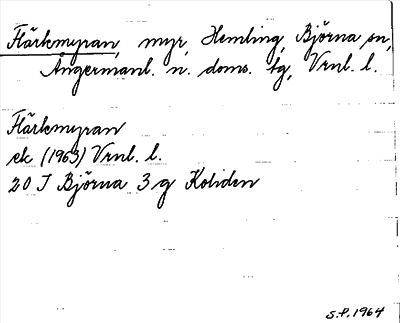 Flärkmyran, myr, Hemling, Björna sn,
Ångermanl. n. doms. tg, Vrnl. l.
Flärkmyran
ek (1963) Vrnl. l.
20 I Björna 3 g Koliden
S.P. 1964